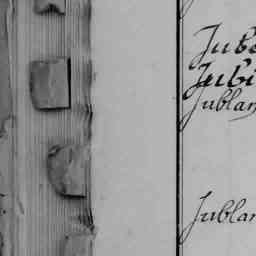 Jube
Jubi
Jublan
Jublan